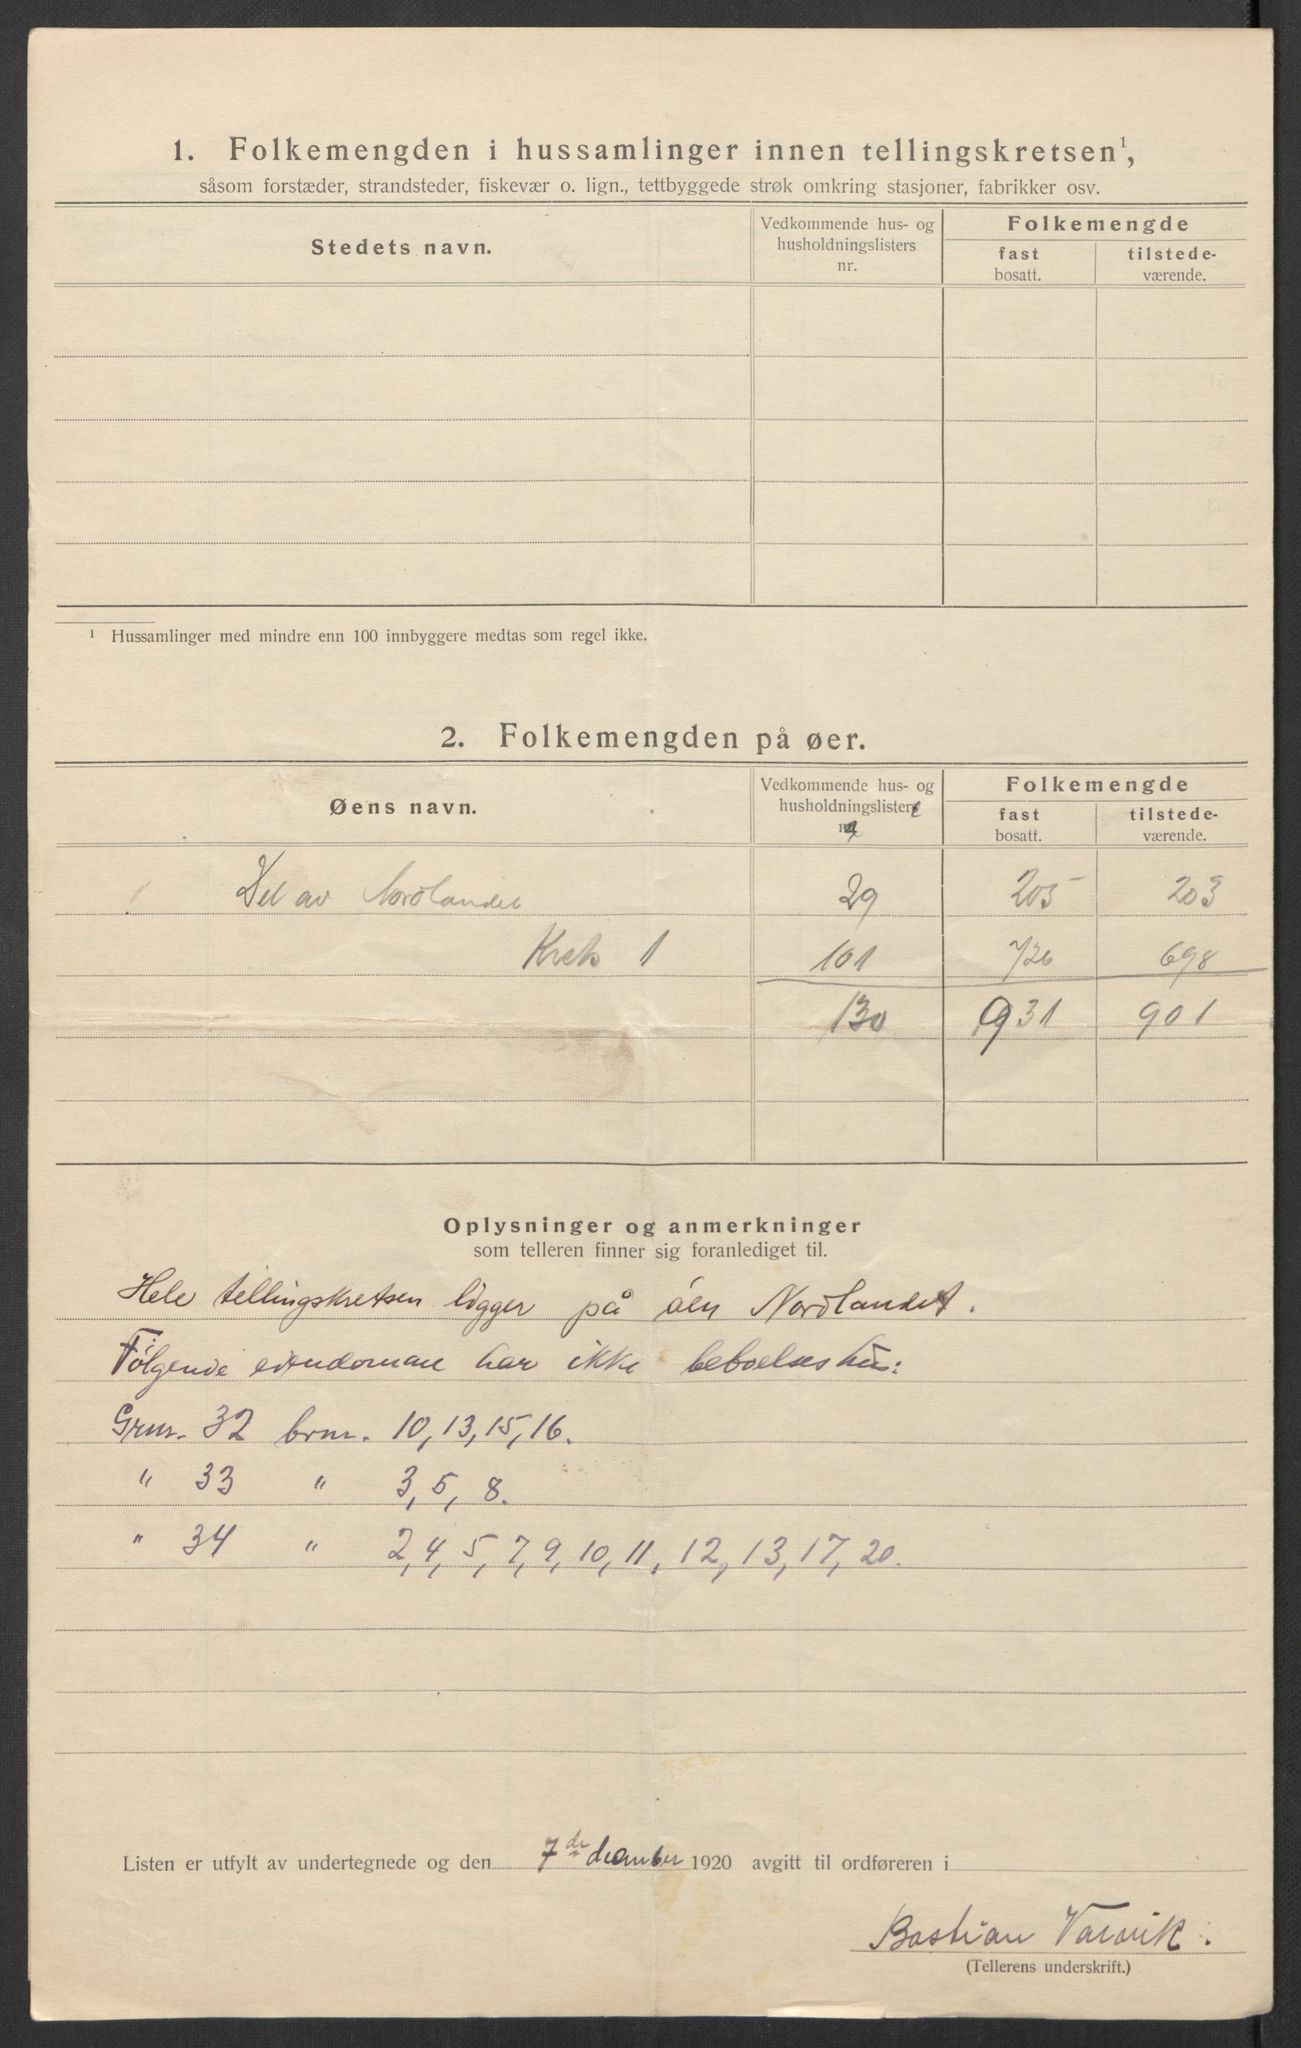 1. Folkemengden i hussamlinger innen tellingskretsen¹,
såsom forstæder, strandsteder, fiskevær o. lign., tettbyggede strøk omkring stasjoner, fabrikker osv.
Stedets navn.
Vedkommende hus- og
husholdningslisters
nr.
Folkemengde
fast
bosatt.
tilstede-
værende.
¹ Hussamlinger med mindre enn 100 innbyggere medtas som regel ikke.
2. Folkemengden på øer.
Øens navn.
Vedkommende hus- og
husholdningslister
Folkemengde
fast
bosatt.
tilstede-
værende.
Del av Nordlandet 29 205 203
Krets 1 101 726 698
130 931 901
Oplysninger og anmerkninger
som telleren finner sig foranlediget til.
Hele tellingskretsen ligger på öen Nordlandet.
Følgende eiendomme har ikke beboelseshus:
Grnr. 32 brnr. 10, 13, 15, 16.
" 33 " 3, 5, 8.
" 34 " 2, 4, 5, 7, 9, 10, 11, 12, 13, 17, 20.
Listen er utfylt av undertegnede og den 7de december 1920 avgitt til ordføreren i
Bastian Varvik.
(Tellerens underskrift.)